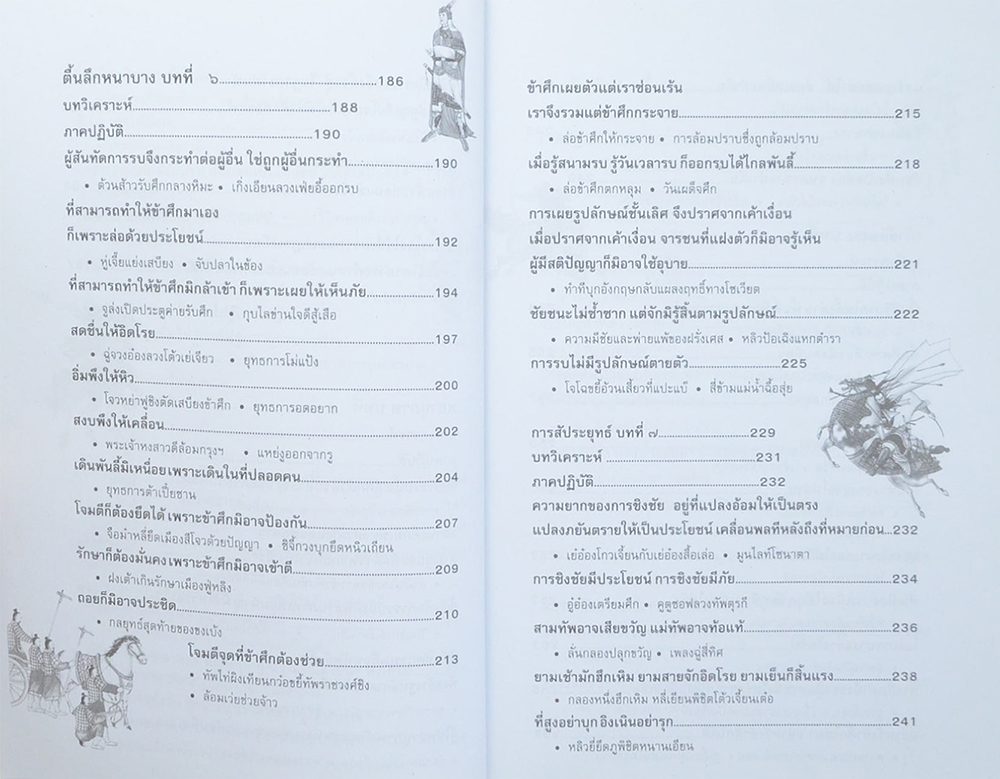 ตื้นลึกหนาบาง บทที่ ๖.....186
บทวิเคราะห์.....188
ภาคปฏิบัติ.....190
ผู้สันทัดการรบจึงกระทำต่อผู้อื่น ใช่ถูกผู้อื่นกระทำ.....190
• ต้วนส้าวรับศึกกลางหิมะ • เกิ่งเอียนลวงเฟ่ยอี้ออกรบ
ที่สามารถทำให้ข้าศึกมาเอง
ก็เพราะล่อด้วยประโยชน์.....192
• หูเจี้ยแย่งเสบียง • จับปลาในข้อง
ที่สามารถทำให้ข้าศึกมิกล้าเข้า ก็เพราะเผยให้เห็นภัย.....194
• จูล่งเปิดประตูค่ายรับศึก • กุบไลข่านใจดีสู้เสือ
สดชื่นให้อิดโรย.....197
• ฉู่จวงอ๋องลวงโต้วเย่เจียว • ยุทธการโม่แป้ง
อิ่มพึงให้หิว.....200
• โจวหย่าฟูชิงตัดเสบียงข้าศึก • ยุทธการอดอยาก
สงบพึงให้เคลื่อน.....202
• พระเจ้าหงสาวดีล้อมกรุงฯ • แหย่งูออกจากรู
เดินพันลี้มิเหนื่อยเพราะเดินในที่ปลอดคน.....204
• ยุทธการต้าเปี๋ยซาน
โจมตีก็ต้องยึดได้ เพราะข้าศึกมิอาจป้องกัน.....207
• จือม้าหลี่ยึดเมืองสีโจวด้วยปัญญา • ซิจี้กวงบุกยึดหนิวเถียน
รักษาก็ต้องมั่นคง เพราะข้าศึกมิอาจเข้าตี.....209
• ฝงเต้าเกินรักษาเมืองฟู่หลิง
ถอยก็มิอาจประชิด.....210
• กลยุทธ์สุดท้ายของขงเบ้ง
โจมตีจุดที่ข้าศึกต้องช่วย.....213
• ทัพไท่ผิงเทียนกว๋อขยี้ทัพราชวงศ์ชิง
• ล้อมเว่ยช่วยจ้าว
ข้าศึกเผยตัวแต่เราซ่อนเร้น
เราจึงรวมแต่ข้าศึกกระจาย.....215
• ล่อข้าศึกให้กระจาย • การล้อมปราบซึ่งถูกล้อมปราบ
เมื่อรู้สนามรบ รู้วันเวลารบ ก็ออกรบได้ไกลพันลี้.....218
• ล่อข้าศึกตกหลุม • วันเผด็จศึก
การเผยรูปลักษณ์ชั้นเลิศ จึงปราศจากเค้าเงื่อน
เมื่อปราศจากเค้าเงื่อน จารชนที่แฝงตัวก็มิอาจรู้เห็น
ผู้มีสติปัญญาก็มิอาจใช้อุบาย.....221
• ทำทีบุกอังกฤษกลับแผลงฤทธิ์ทางโซเวียต
ชัยชนะไม่ซ้ำซาก แต่จักมิรู้สิ้นตามรูปลักษณ์.....222
• ความมีชัยและพ่ายแพ้ของฝรั่งเศส • หลิวป้อเฉิงแหกตำรา
การรบไม่มีรูปลักษณ์ตายตัว.....225
• โจโฉขยี้อ้วนเสี้ยวที่แปะแบ๊ • สี่ข้ามแม่น้ำฉื้อสุ่ย
การสัประยุทธ์ บทที่ ๗.....229
บทวิเคราะห์.....231
ภาคปฏิบัติ.....232
ความยากของการชิงชัย อยู่ที่แปลงอ้อมให้เป็นตรง
แปลงภยันตรายให้เป็นประโยชน์ เคลื่อนพลทีหลังถึงที่หมายก่อน...232
• เย่อ๋องโกวเจี้ยนกับเย่อ๋องสื้อเล่อ • มูนไลท์โซนาตา
การชิงชัยมีประโยชน์ การชิงชัยมีภัย.....234
• อู๋อ๋องเตรียมศึก • คูตูซอฟลวงทัพตุรกี
สามทัพอาจเสียขวัญ แม่ทัพอาจท้อแท้.....236
• ลั่นกลองปลุกขวัญ • เพลงฉู่สี่ทิศ
ยามเช้ามักฮึกเหิม ยามสายจักอิดโรย ยามเย็นก็สิ้นแรง.....238
• กลองหนึ่งฮึกเหิม หลี่เยียนพิชิตโต้วเจี้ยนเต๋อ
ที่สูงอย่าบุก อิงเนินอย่ารุก.....241
• หลิวยี่ยึดภูพิชิตหนานเอียน